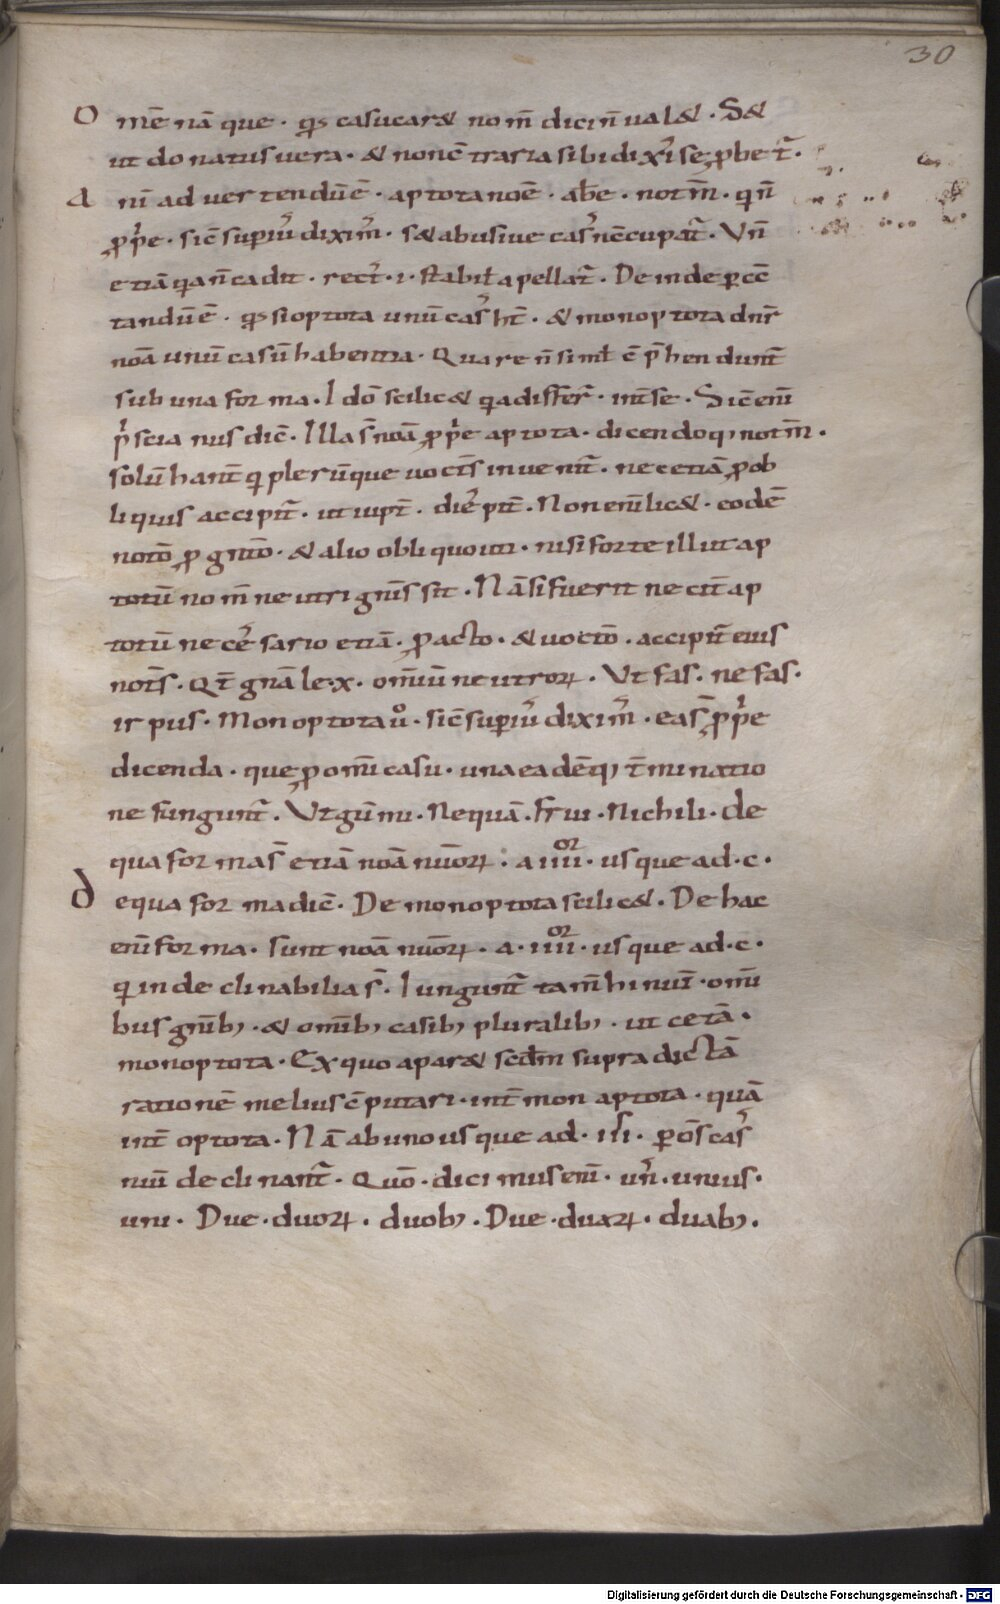 30
O mē nā que · qs casu car& no m̄ dici n̄ ual& · S&
ut do natus uera · & non c̄ traria sibi dixisse, p̱be t̄ ·
A ni ad uer tendū ē · aptota no ē · abe · notm̄ · qi n̄
p̱p̱e · sic̄ superiꝰ diximꝰ · s& abusiue casꝰ nēcupat̄ · Vn̄
etiā qia n̄ cadit · rectꝰ · i · stabil apellat̄ · De inde p̱ cc̄
tandū ē · qs si optota unū casꝰ ht̄ · & monoptota dn̄r
noā unū casū habentia · Quare n̄ siml c̄ p̄hen dunt̄
sub una for ma · I dō scilic& qia differt̄ · int̄ se · Sic̄ eni
pͥscia nus dic̄ · Illa s̄ noā p̱p̱e aptota · dicendo qꝫ notm̄ ·
solū hant̄ qi plerūque uoctīs inuenit̄ · nec etiā p̱ ob
li quis accipit̄ · ut iupt̄ · dies pit̄ · Non enī lic& · eodē
notō p̱ gnitō · & alio obli quo uti · nisi forte illut ap
totū no m̄ neutri gnīs sit · Nā si fuerit necit̄ ap
totū ne cesꝰ sario etiā · p̱ acto · & uoctō · accipit̄ eius
notīs · Qt̄ gnā le · x · omīū neutroꝝ · Vt fas · ne fas ·
ir pus · Monoptota uº · sic̄ superiꝰ diximꝰ · ea s̄ p̱p̱e
dicenda · que p̱ omi casu · una eadēqꝫ t̄minatio
ne fungunt̄ · Vt gūmi · Nequā · Frui · Nichili · de
qua forma s̄ etiā noā nuōꝝ · a iiii or · usque ad · c ·
D e qua for ma dic̄ · De monoptota scilic& · De hac
enī for ma · sunt noā nuōꝝ · a · iiii or · usque ad · c ·
qi inde cli nabilia s̄ · Iungunt̄ tam̄ hi nuī · omi
bus gnībꝫ · & omībꝫ casibꝫ pluralibꝫ · ut cetā ·
monoptota · Ex quo apar& scdm̄ supra dictā
rationē melius c̄putari · int̄ mon aptota · quā
int̄ optota · Nā ab uno usque ad · iii · p̱ oīs casꝰ
niū de cli nant̄ · Quō · dici mus enī · unꝰ · unius ·
uni · Due · duoꝝ · duobꝫ · Due · duaꝝ · duabꝫ ·
Digitalisierung gefördert durch die Deutsche Forschungsgemeinschaft - DFG